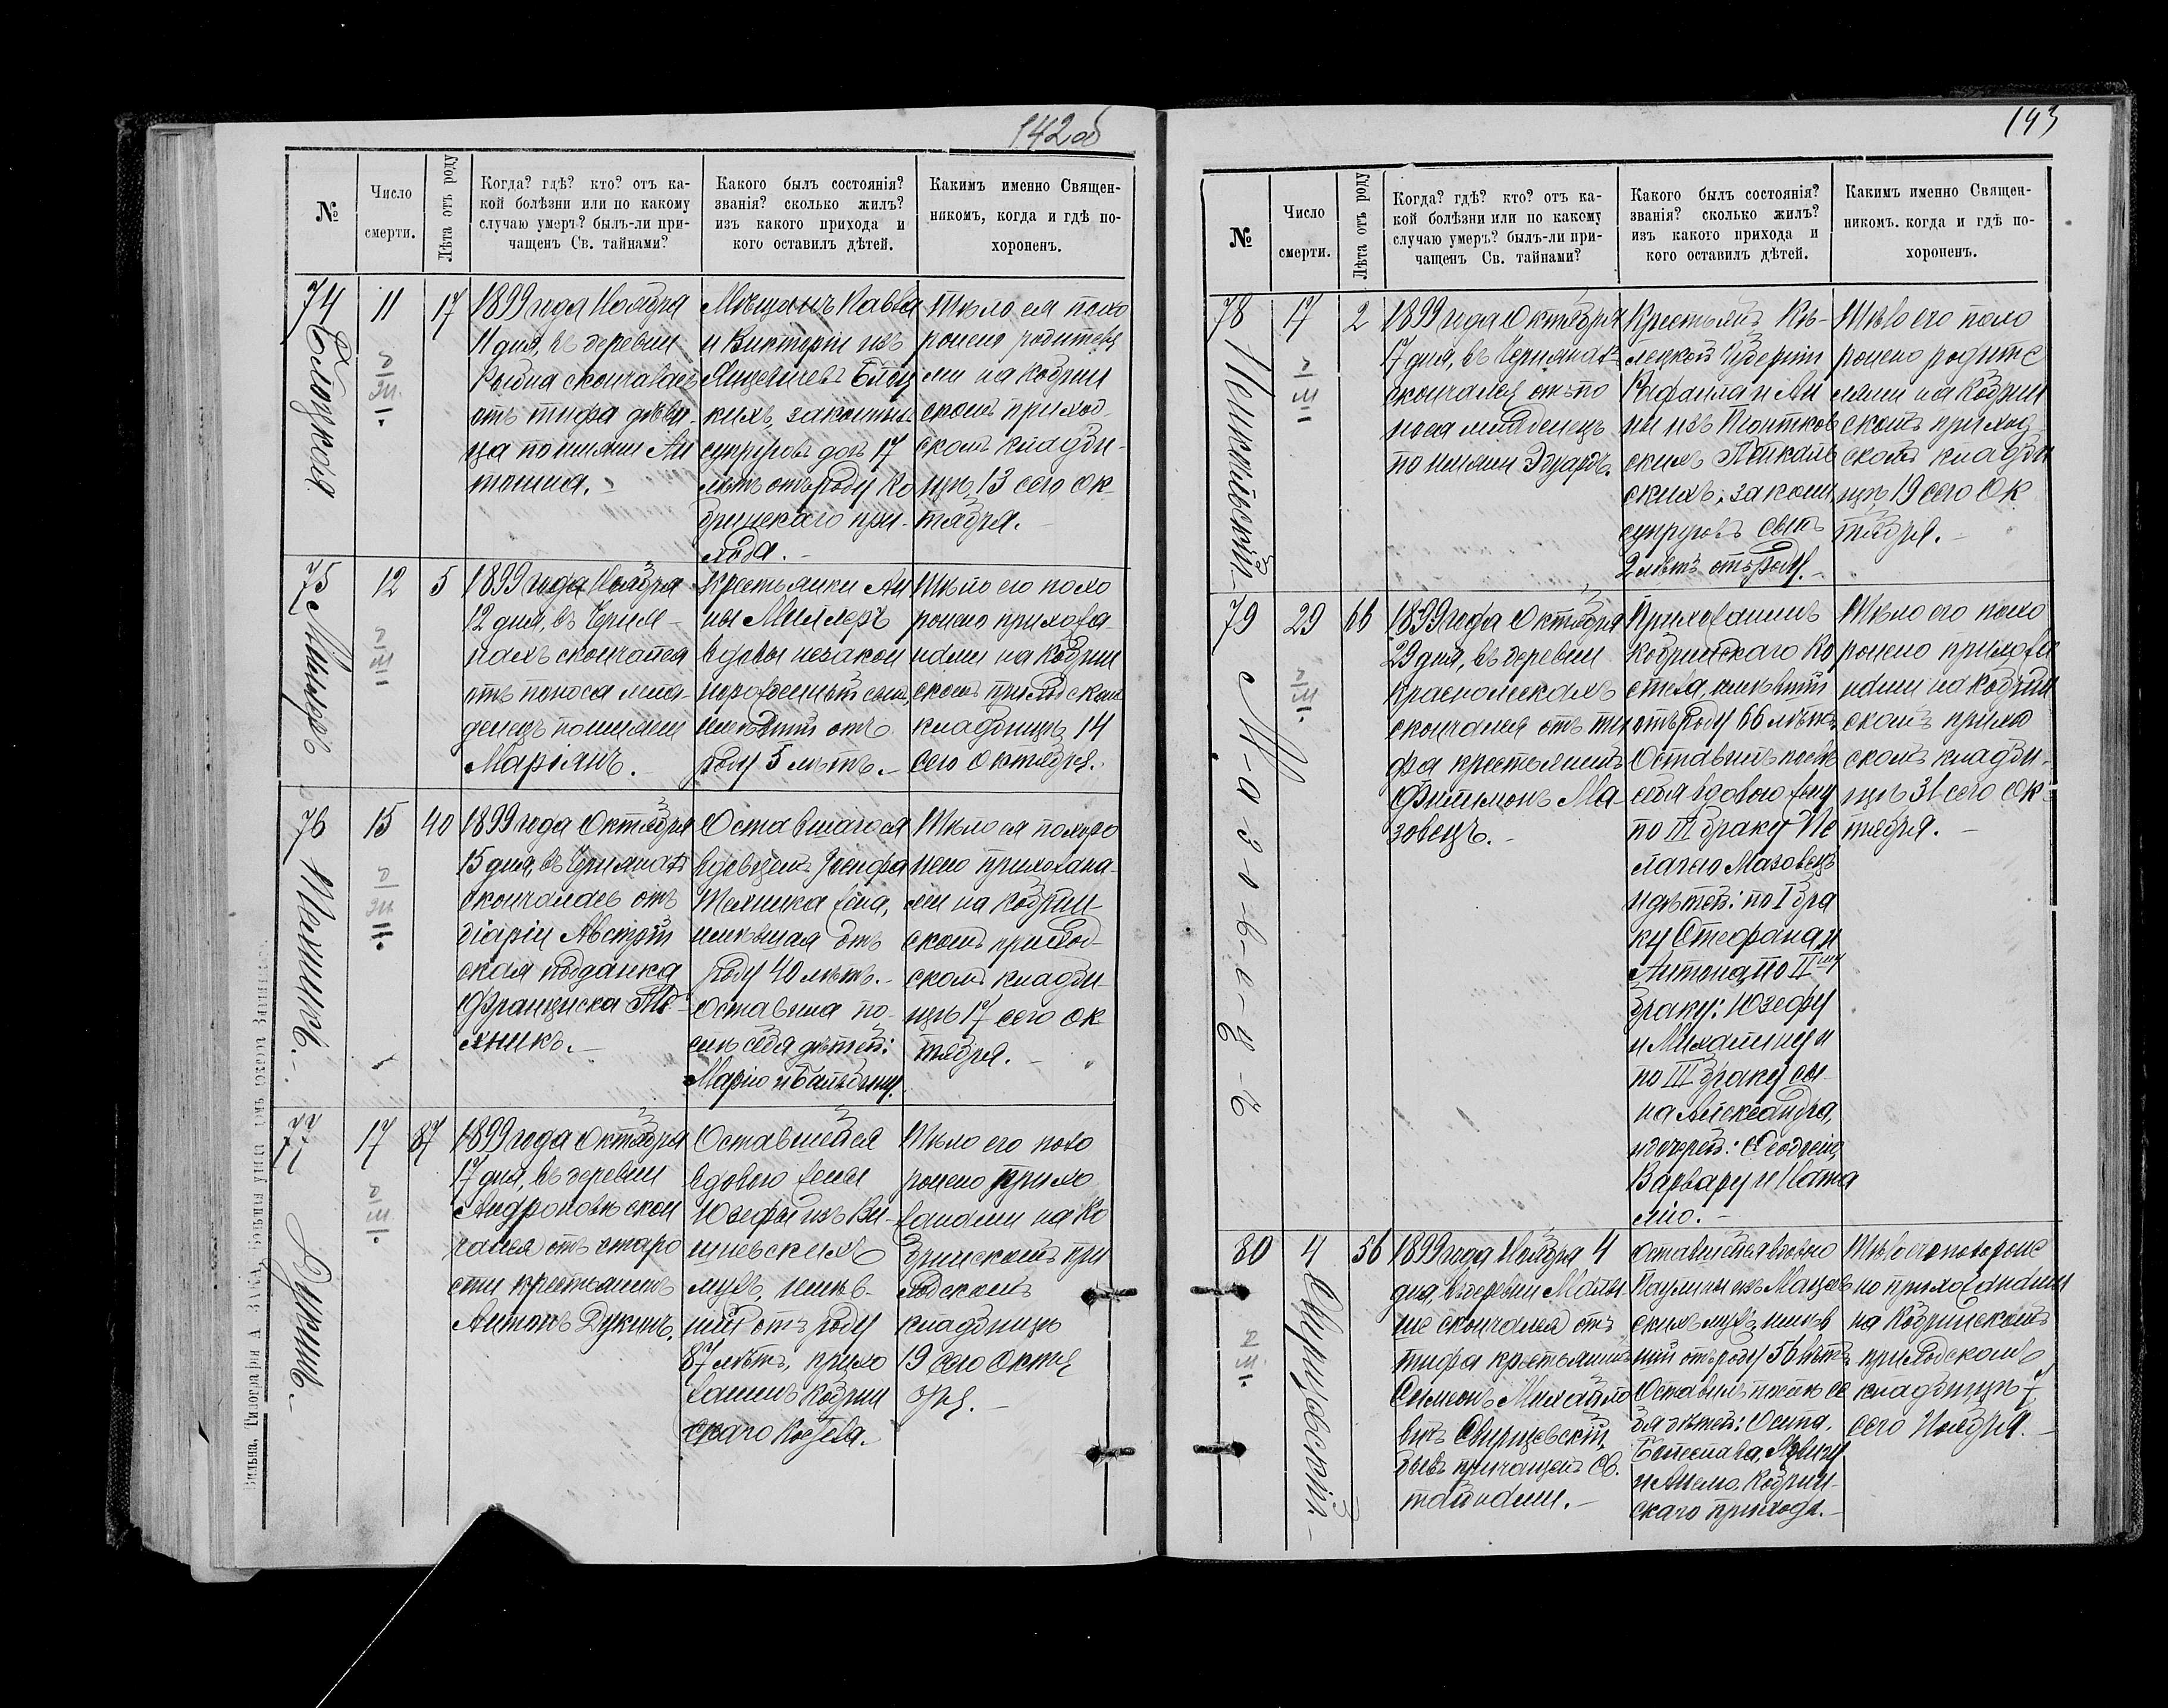 142об
№
Число
смерти.
Лѣта отъ роду
Когда? гдѣ? кто? отъ ка-
кой болѣзни или по какому
случаю умеръ? былъ-ли при-
чащенъ Св. тайнами?
Какого былъ состоянія?
званія? сколько жилъ?
изъ какого прихода и
кого оставилъ дѣтей.
Какимъ именно Священ-
никомъ, когда и гдѣ по-
хороненъ.
74
11
17
1899 года Ноября
11 дня, въ деревни
скончалась
отъ тифа дѣви-
ца по имени Ан
тонина.
Мѣщанъ Павла
и Викторіи изъ
кихъ, законныхъ
супруговъ дочь 17
лѣтъ отъ роду Ко
бринскаго при-
хода.
Тѣло ея похо
ронено родителя
ми на Кобрин
скомъ приход-
скомъ кладби-
щѣ, 13 сего Ок-
тября.
75
Миллеръ
12
5
1899 года Ноября
12 дня, въ
скончался
отъ поноса мла-
денецъ по имени
Маріянъ.
Крестьянки Ан
ны Миллеръ
вдовы незакон
норожденный сынъ,
имѣвшій отъ
роду 5 лѣтъ.
Тѣло его похо
ронено прихожа-
нами на Кобрин
скомъ приходскомъ
кладбищѣ, 14
сего Октября.
76
Техникъ.
15
40
1899 года Октября
15 дня, въ
скончалась отъ
діаріи Австрій
ская подданка
Франциска Те-
хникъ.
Оставшагося
вдовцемъ Іосифа
Техника жена,
имѣвшая отъ
роду 40 лѣтъ.
Оставила по-
слѣ себя дѣтей:
Марію и Бальбину.
Тѣло ея похоро
нено прихожана-
ми на Кобрин-
скомъ приход-
скомъ кладби-
щѣ 17 сего Ок
тября.
77
Дукинъ.
17
87
1899 года Октября
17 дня, въ деревни
Андроновѣ скон
чался отъ старо
сти крестьянинъ
Антонъ Дукинъ.
Оставшейся
вдовою жены
Юзефы изъ Ви-
шневскихъ
мужъ, имѣв-
шій отъ роду
87 лѣтъ, прихо
жанинъ Кобрин
скаго Костела.
Тѣло его похо
ронено прихо
жанами на Ко
бринскомъ при
ходскомъ
кладбищѣ
19 сего Октя
бря.
143
№
Число
смерти.
Лѣта отъ роду
Когда? гдѣ? кто? отъ ка-
кой болѣзни или по какому
случаю умеръ? былъ-ли при-
чащенъ Св. тайнами?
Какого былъ состоянія?
званія? сколько жилъ?
изъ какого прихода и
кого оставилъ дѣтей.
Какимъ именно Священ-
никомъ. когда и гдѣ по-
хороненъ.
78
17
2
1899 года Октября
17 дня, въ
скончался отъ по
носа младенецъ
по имени Эдуардъ.
Крестьянъ Кѣ-
лецкой Губерніи
Рафаила и Ан
ны изъ
скихъ
скихъ, закон.
супруговъ сынъ
2 лѣтъ отъ роду.
Тѣло его похо
ронено родите
лями на Кобрин
скомъ приход
скомъ кладби
щѣ, 19 сего Ок
тября.
79
М-а-з-о-в-е-ц-ъ
29
66
1899 года Октября
29 дня, въ деревни
скончался отъ ти
фа крестьянинъ
Филимонъ Ма-
зовецъ.
Прихожанинъ
Кобринскаго Ко
стела, имѣвшій
отъ роду 66 лѣтъ.
Оставилъ послѣ
себя вдовою жену
по III браку Пе
лагію Мазовецъ
и дѣтей: по I бра
ку Стефана, и
Антона, по II му
браку: Юзефу
и Михалину и
по III браку сы-
на Александра,
и дочерей:
Варвару и Ната
лію.
Тѣло его похо
ронено прихожа
нами на Кобрин
скомъ приход
скомъ кладби-
щѣ 31 сего Ок-
тября.
80
4
56
1899 года Ноября 4
дня, въ деревни
скончался отъ
тифа крестьянинъ
Симеонъ Михайло
вичъ Свирщевскій,
бывъ причащенъ Св.
тайнами.
Оставшейся вдовою
Паулины изъ
скихъ мужъ, имѣв
шій отъ роду 56 лѣтъ
Оставилъ послѣ се
бя дѣтей: Осипа,
Болеслава,
и Кобрин-
скаго прихода.
Тѣло его похороне
но прихожанами
на Кобринскомъ
приходскомъ
кладбищѣ 7
сего Ноября.